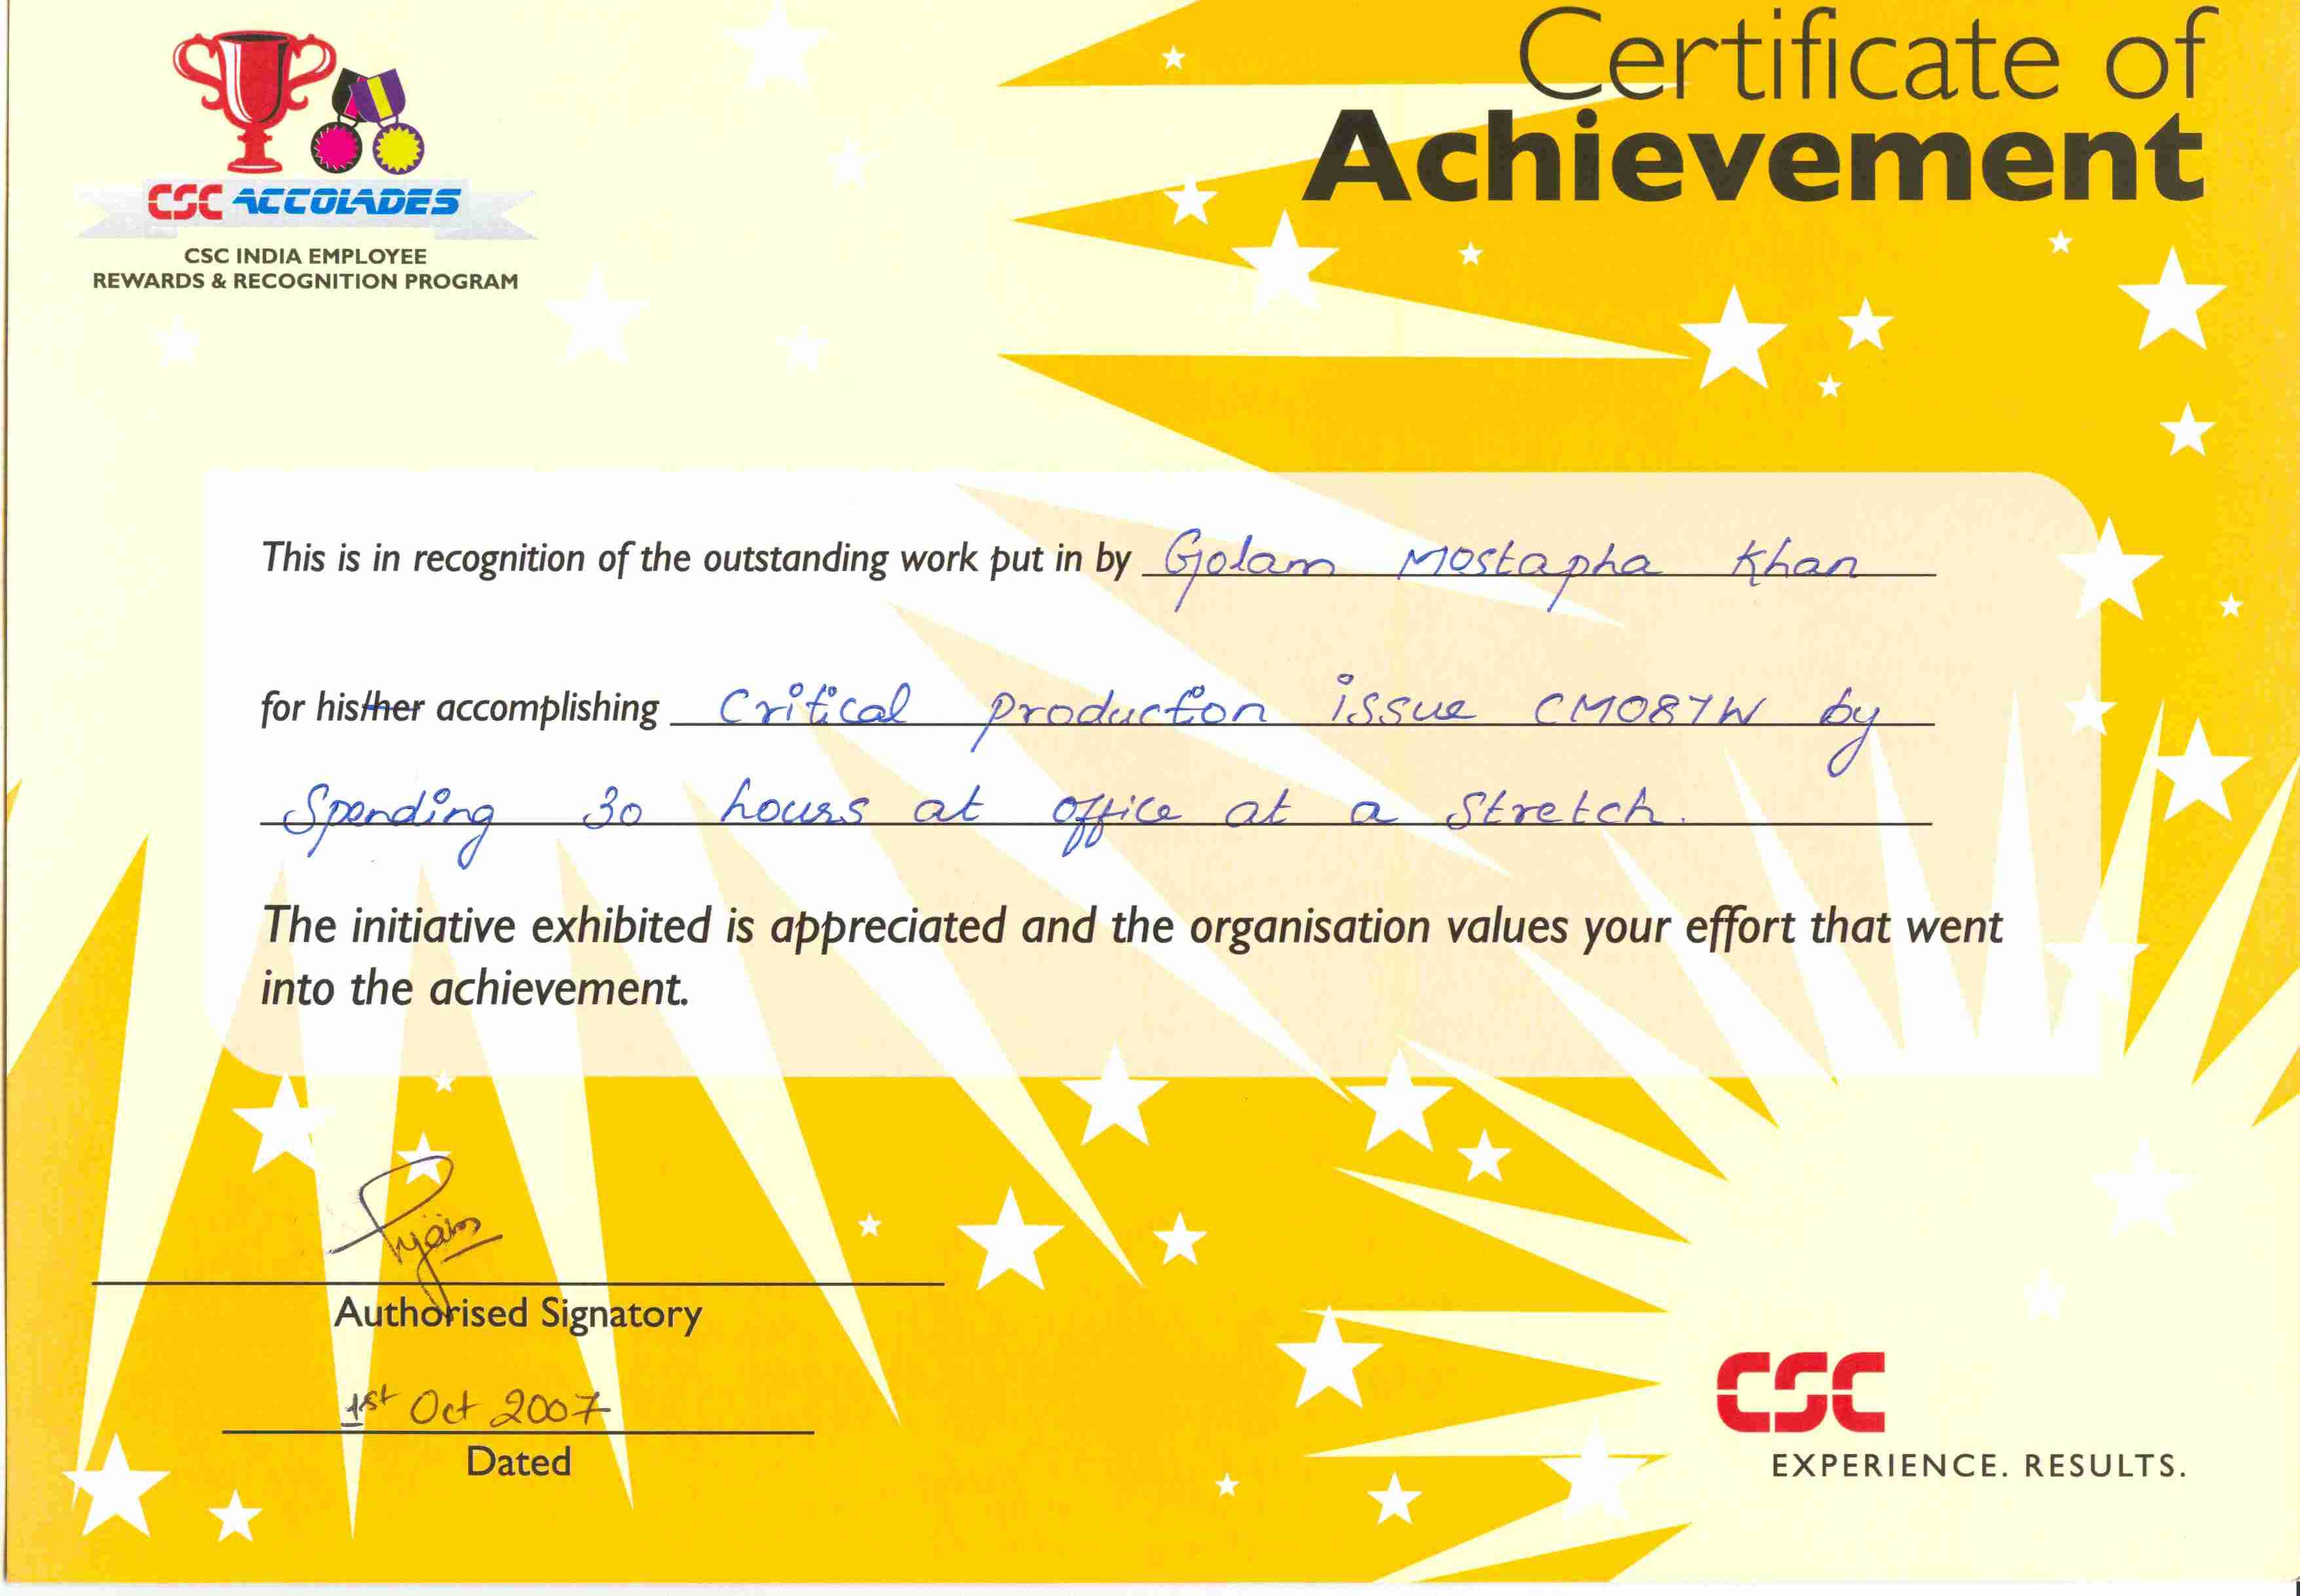 Certificate of
Achievement
CSC ACCOLADES
CSC INDIA EMPLOYEE
REWARDS & RECOGNITION PROGRAM
This is in recognition of the outstanding work put in by Golam Mostapha Khan
for his/her accomplishing Critical production issue CM087W by
Spending 30 hours at office at a stretch.
The initiative exhibited is appreciated and the organisation values your effort that went
into the achievement.
Authorised Signatory
1st Oct 2007
Dated
CSC
EXPERIENCE. RESULTS.